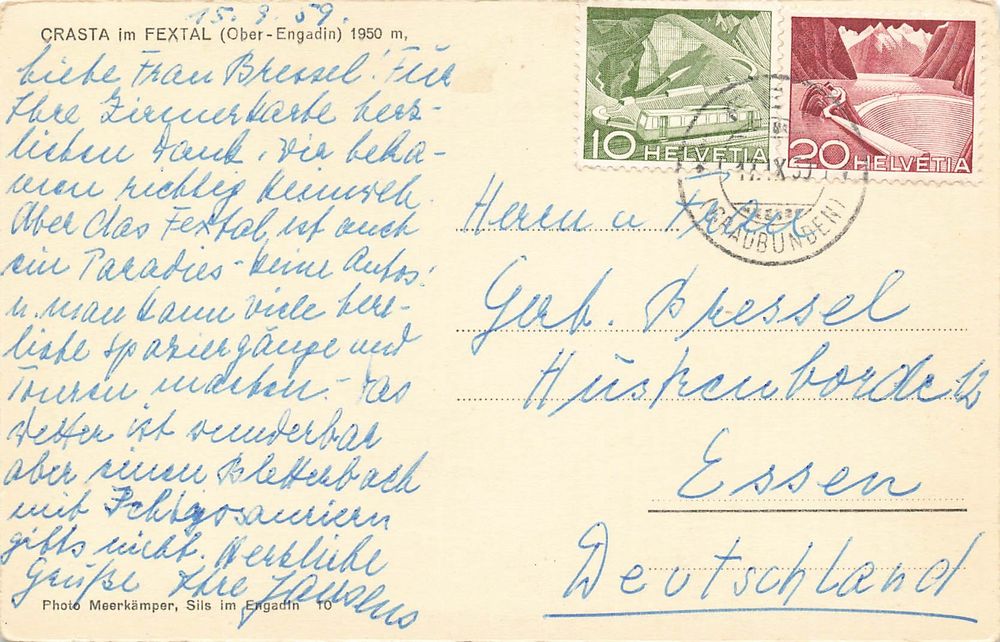 15. 9. 59.
CRASTA im FEXTAL (Ober-Engadin) 1950 m,
Liebe Frau Bressel! Für
Ihre Zirmerkarte herz-
lichen Dank, wir beka-
men richtig Heimweh.
Aber das Fextal ist auch
ein Paradies - keine Autos!
u. man kann viele herr-
liche Spaziergänge und
Touren machen - Das
Wetter ist wunderbar
aber einen Bletterbach
mit Ichtyosauriern
gibts nicht. Herzliche
Grüße Ihre Jansens
Photo Meerkämper, Sils im Engadin 10
10 HELVETIA
20 HELVETIA
17.IX.59
(GRAUBÜNDEN)
Herrn u Frau
Gerh. Bressel
Hüskenbörde 12
Essen
Deutschland